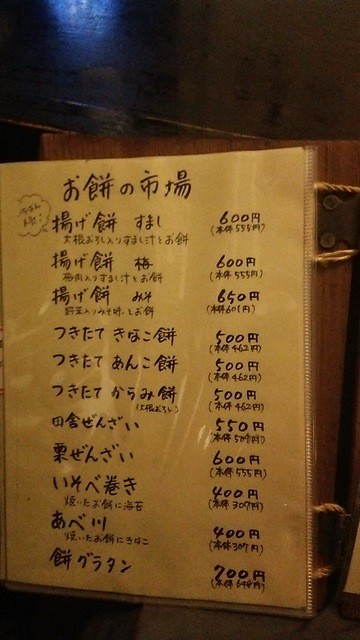 お餅の市場
揚げ餅 すまし 600円
大根おろし入りすまし汁とお餅 (本体555円)
揚げ餅 梅 600円
梅肉入りすまし汁とお餅 (本体555円)
揚げ餅 みそ 650円
野菜入りみそ味汁とお餅 (本体601円)
つきたて きなこ餅 500円
(本体462円)
つきたて あんこ餅 500円
(本体462円)
つきたて からみ餅 500円
(大根おろし) (本体462円)
田舎ぜんざい 550円
(本体509円)
栗ぜんざい 600円
(本体555円)
いそべ巻き 400円
焼いたお餅に海苔 (本体307円)
あべ川 400円
焼いたお餅にきなこ (本体307円)
餅グラタン 700円
(本体648円)